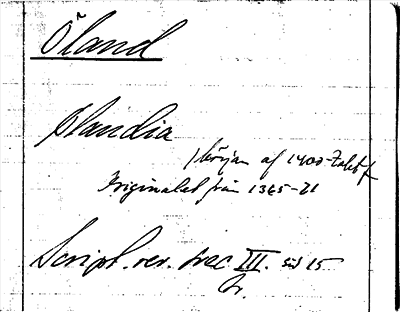 Öland
Ølandia
början af 1400-talet
Originalet från 1365-71
Script. rer. svec III. sid 15